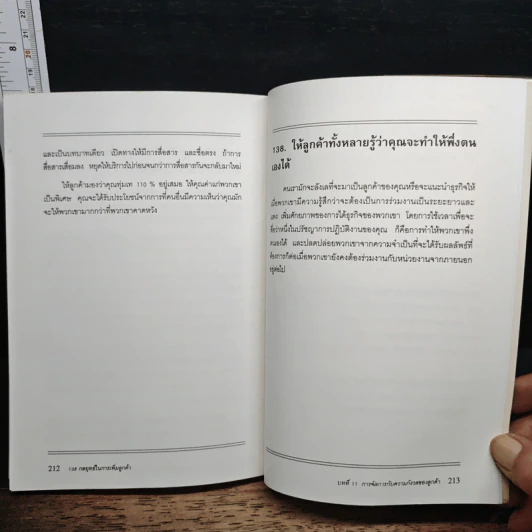 และเป็นบทบาทเดียว เปิดทางให้มีการสื่อสาร และซื่อตรง ถ้าการ
สื่อสารเสื่อมลง หยุดให้บริการไปก่อนจนกว่าการสื่อสารกันจะกลับมาใหม่
ให้ลูกค้ามองว่าคุณทุ่มเท 110 % อยู่เสมอ ให้คุณค่าแก่พวกเขา
เป็นพิเศษ คุณจะได้รับประโยชน์จากการที่คนอื่นมีความเห็นว่าคุณมัก
จะให้พวกเขามากกว่าที่พวกเขาคาดหวัง
212 138 กลยุทธ์ในการเพิ่มลูกค้า
138. ให้ลูกค้าทั้งหลายรู้ว่าคุณจะทำให้พึ่งตน
เองได้
คนเรามักจะลังเลที่จะมาเป็นลูกค้าของคุณหรือจะแนะนำธุรกิจให้
เมื่อพวกเขามีความรู้สึกว่าจะต้องเป็นการร่วมงานเป็นระยะยาวและ
แสดง เพิ่มศักยภาพของการได้ธุรกิจของพวกเขา โดยการใช้เวลาเพื่อจะ
ถือว่าหนึ่งในปรัชญาการปฏิบัติงานของคุณ ก็คือการทำให้พวกเขาพึ่ง
ตนเองได้ และปลดปล่อยพวกเขาจากความจำเป็นที่จะได้รับผลลัพธ์ที่
ต้องการก็ต่อเมื่อพวกเขายังคงต้องร่วมงานกับหน่วยงานจากภายนอก
อยู่ต่อไป
บทที่ 11 การจัดการกับความกังวลของลูกค้า 213
8
22
21
20